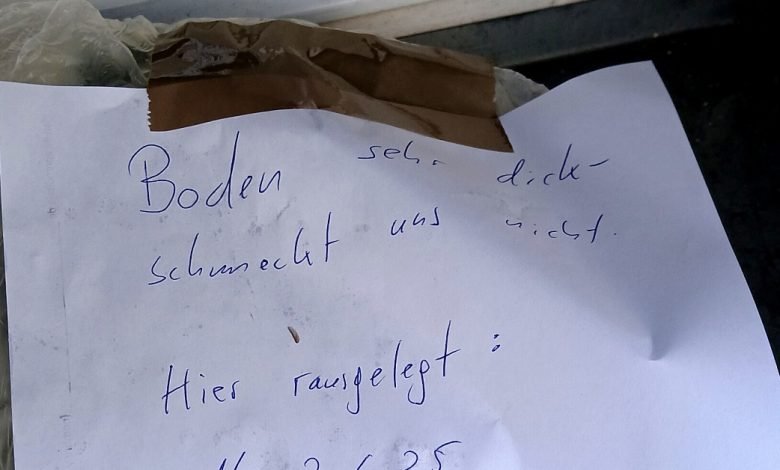 Boden sehr dick-
schmeckt uns nicht.
Hier rausgelegt: